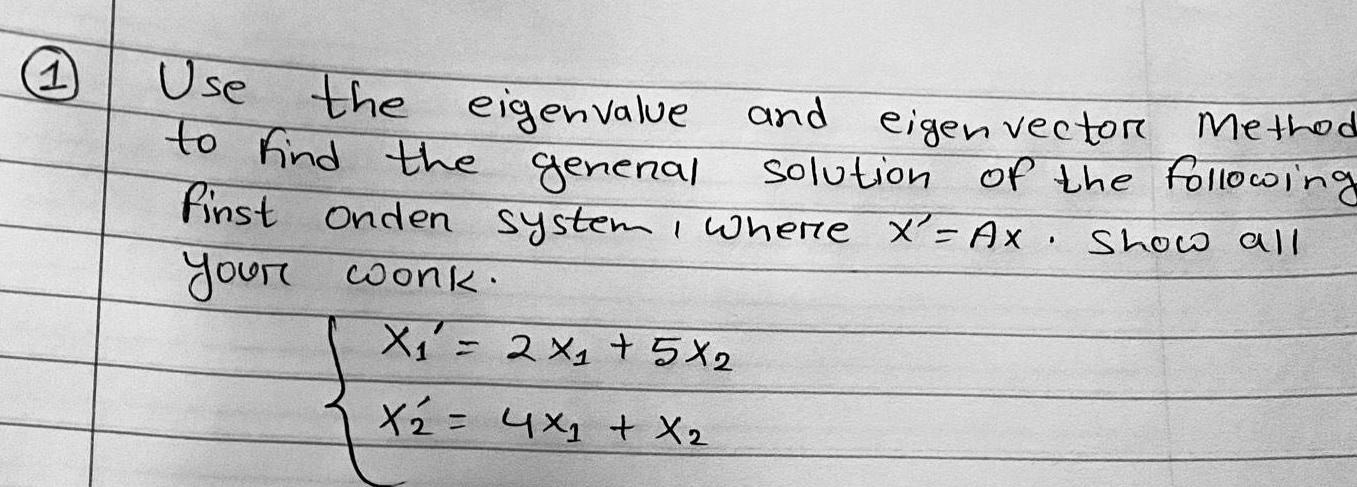 ① Use the eigenvalue and eigenvector Method
to find the general solution of the following
first order system, where x' = Ax. Show all
your work.
x₁' = 2x₁ + 5x₂
x₂' = 4x₁ + x₂